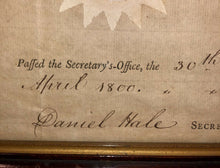 Passed the Secretary's-Office, the 30th
April 1800. " "
Daniel Hale Secre